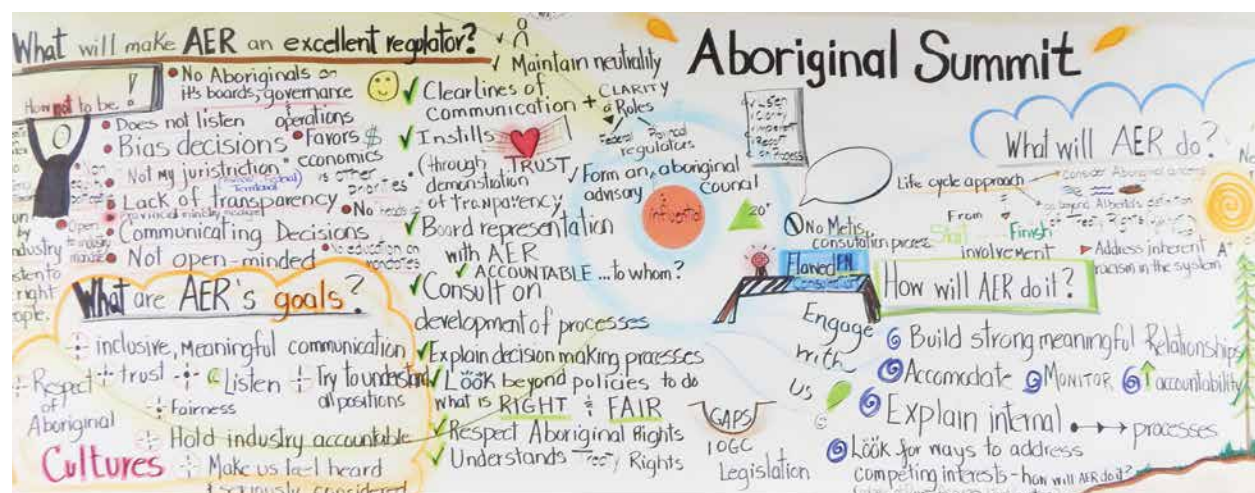 What will make AER an excellent regulator?
How not to be!
No Aboriginals on
it's boards, governance
operations
Does not listen
Bias decisions
Favors $
economics
is other
priorities
Not my juristriction
Territorial
Lack of transparency
Communicating Decisions
Not open-minded
No education on
mandates
Open
to industry
industry
listen to
right
What are AER's goals?
inclusive, Meaningful communication
Respect
of
Aboriginal
Cultures
trust
Listen
Try to understand
all positions
Fairness
Hold industry accountable
Make us feel heard
& seriously considered
Maintain neutrality
Clear lines of
communication +
CLARITY
of
Roles
Federal
regulators
Instills
TRUST
(through
demonstration
of tranparency
Form an aboriginal
advisory
Council
influential
20°
Board representation
with AER
ACCOUNTABLE ... to whom?
Consult on
development of processes
Explain decision making processes
Look beyond policies to do
what is RIGHT & FAIR
Respect Aboriginal Rights
Understands Treaty Rights
GAPS
IOGC
Legislation
Aboriginal Summit
No Metis
Flawed
Engage
with
us
What will AER do?
Life cycle approach
consider Aboriginal
From
Start
Finish
involvement
Address inherent
racism in the system
How will AER do it?
Build strong meaningful Relationships
Accomodate
MONITOR
accountability
Explain internal
processes
Look for ways to address
competing interests - how will AER do it?